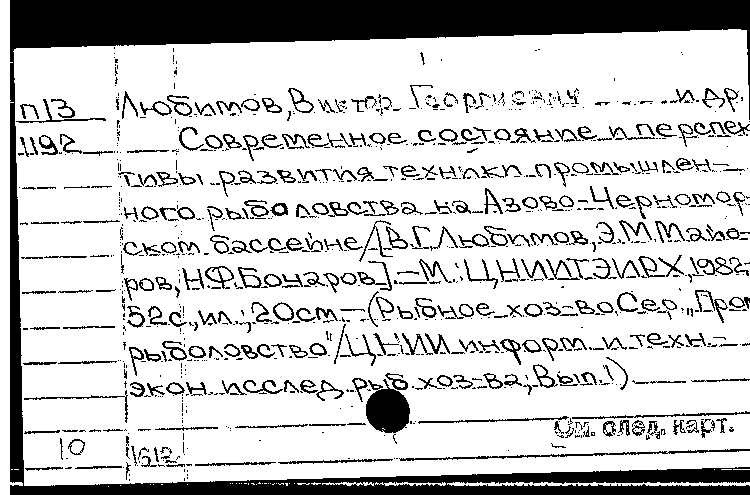 1
п13 Любимов, Виктор Георгиевич и др.
1192 Современное состояние и перспек
тивы развития техники промышлен-
ного рыболовства на Азово-Черномор-
ском бассейне/[В.Г.Любимов, Э.М.Майо-
ров, Н.Ф.Бочаров].-М.:ЦНИИТЭИРХ, 1982-
52с., ил.; 20см.-(Рыбное хоз-во. Сер. „Пром
рыболовство"/ЦНИИ информ. и техн.-
экон. исслед. рыб. хоз-ва; Вып. 1)
См. след. карт.
10 1612